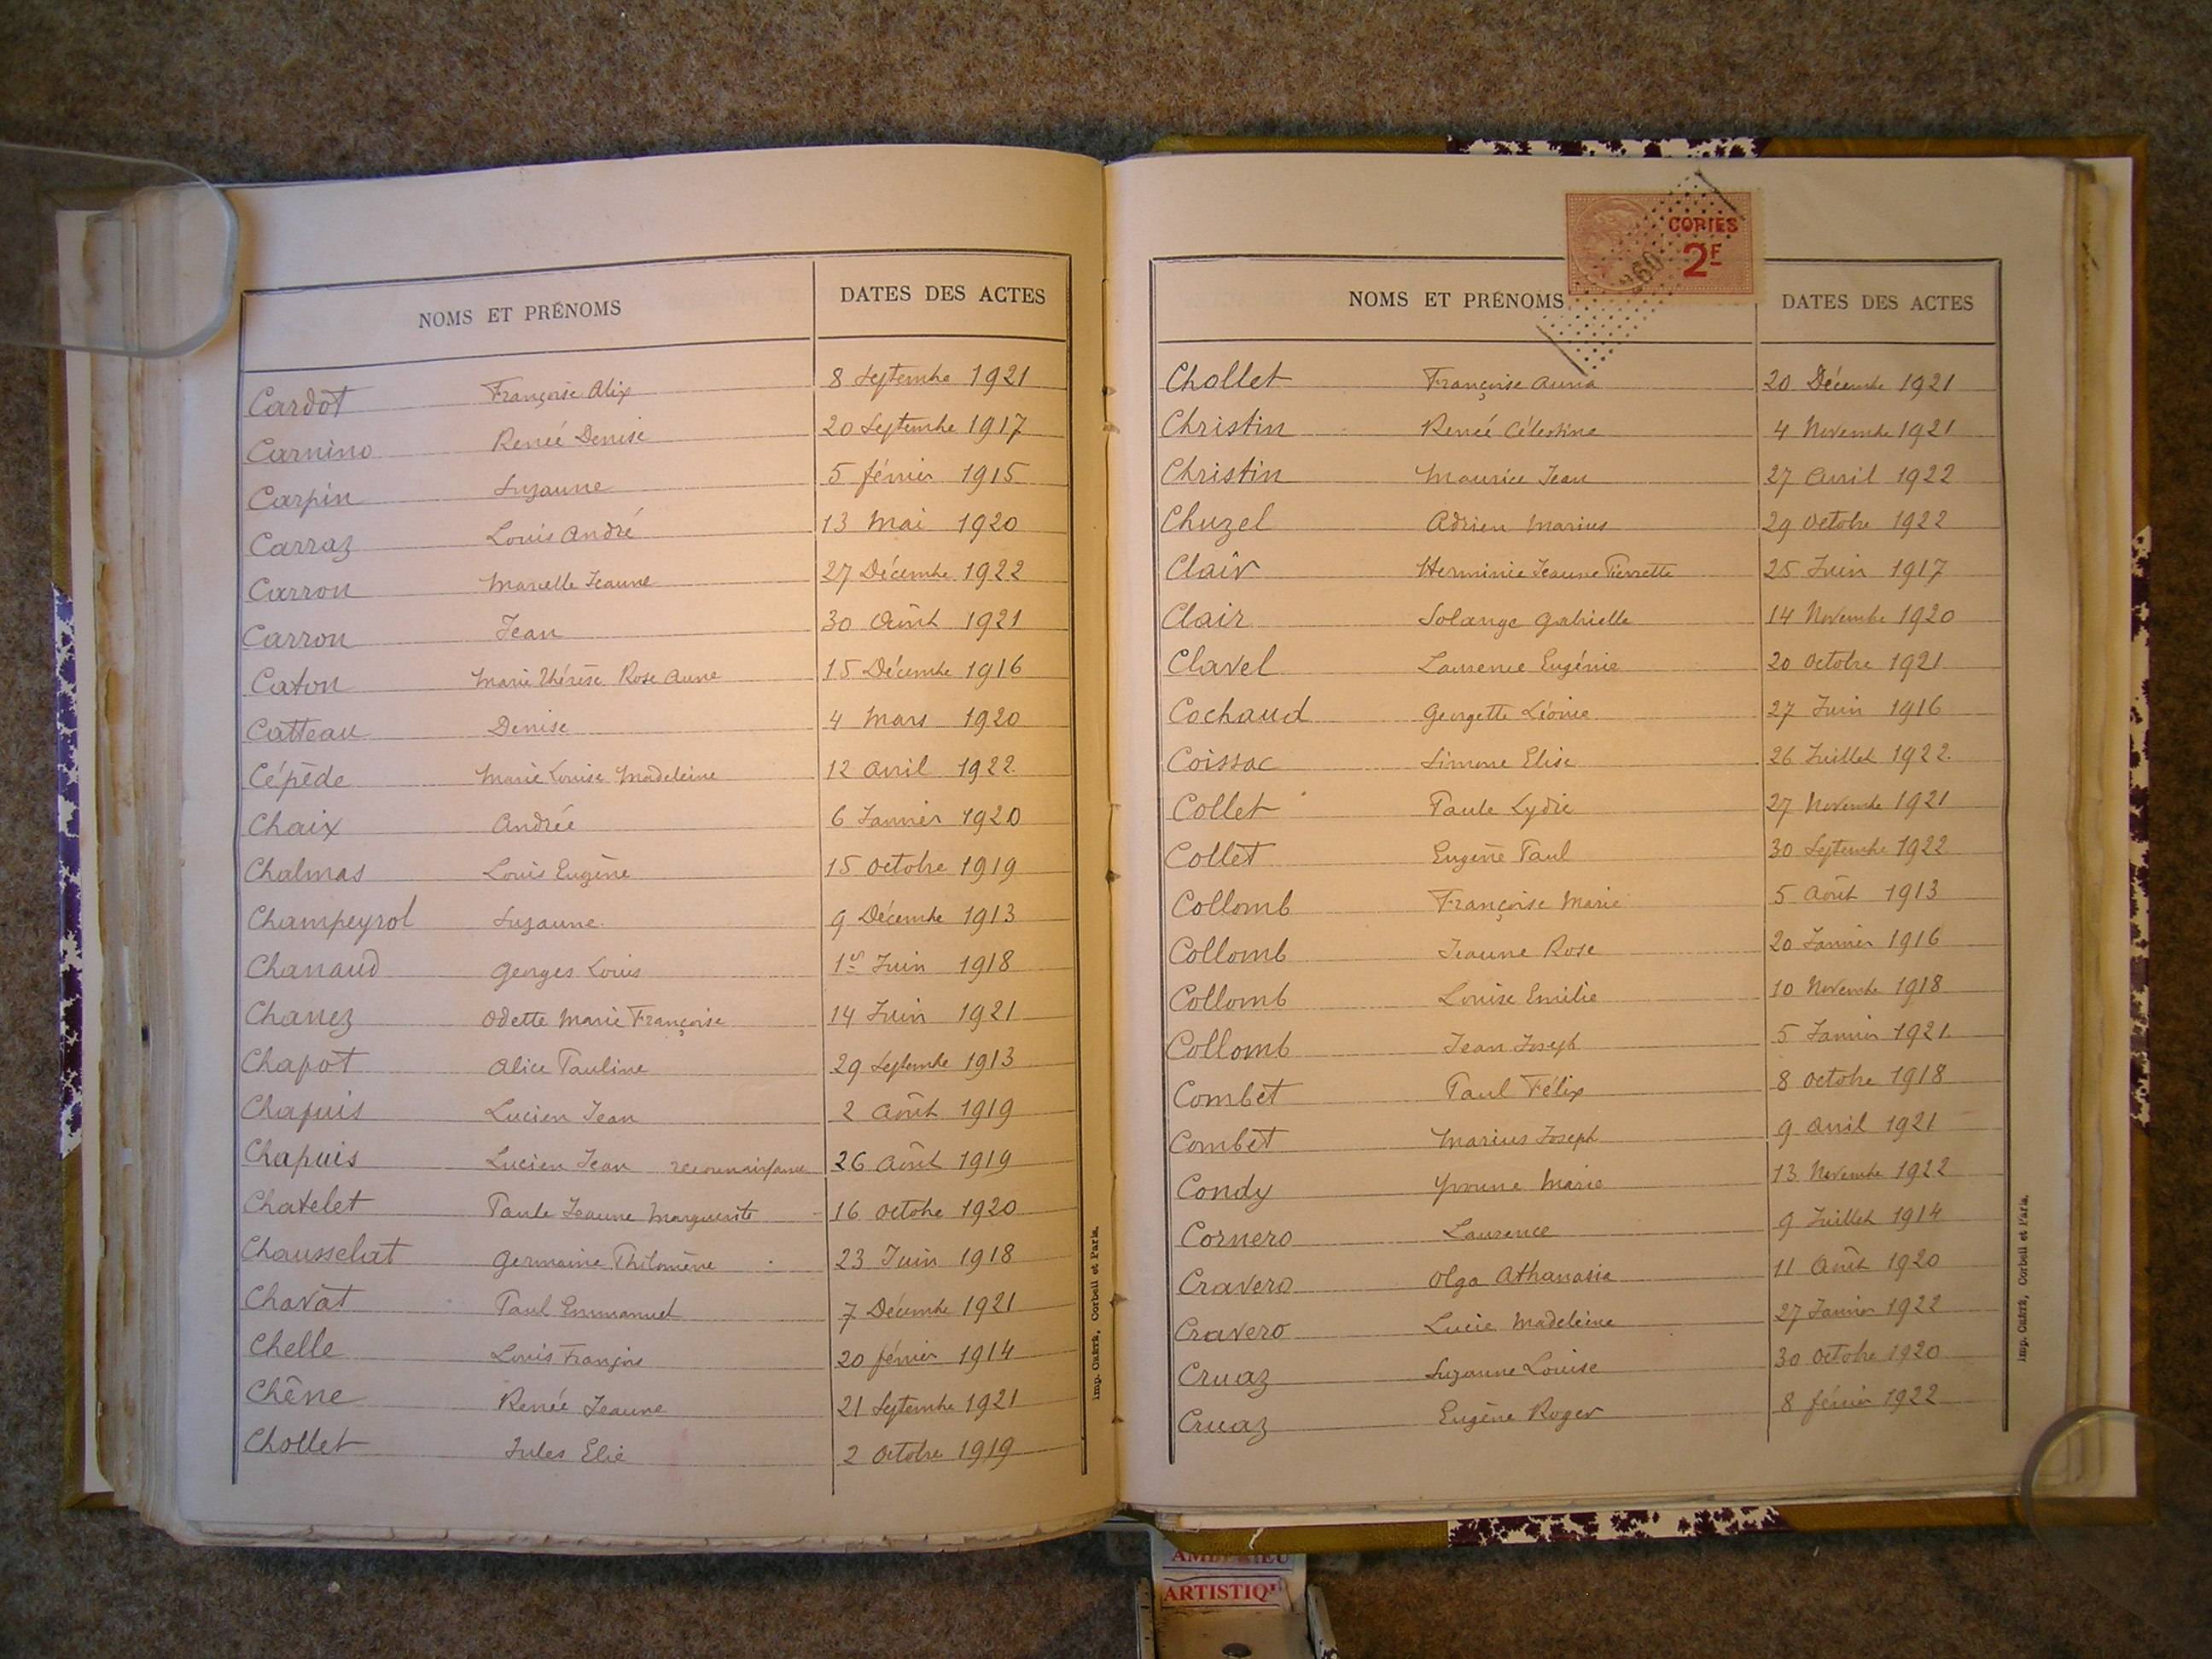 NOMS ET PRÉNOMS DATES DES ACTES
Cardot Françoise Alix 8 Septembre 1921
Carnino Renée Denise 20 Septembre 1917
Carpin Suzanne 5 février 1915
Carraz Louis André 13 Mai 1920
Carron Marcelle Jeanne 27 Décembre 1922
Carron Jean 30 Août 1921
Caton Marie Thérèse Rose Anne 15 Décembre 1916
Catteau Denise 4 Mars 1920
Cépède Marie Louise Madeleine 12 Avril 1922
Chaix Andrée 6 Janvier 1920
Chalmas Louis Eugène 15 Octobre 1919
Champeyrol Suzanne 9 Décembre 1913
Chanaud Georges Louis 1er Juin 1918
Chanez Odette Marie Françoise 14 Juin 1921
Chapot Alice Pauline 29 Septembre 1913
Chapuis Lucien Jean 2 Août 1919
Chapuis Lucien Jean reconnaissance 26 Août 1919
Chatelet Paule Jeanne Marguerite 16 Octobre 1920
Chausselat Germaine Philomène 23 Juin 1918
Chavat Paul Emmanuel 7 Décembre 1921
Chelle Louis François 20 février 1914
Chêne Renée Jeanne 21 Septembre 1921
Chollet Jules Elie 2 Octobre 1919
Imp. Corbeil et Paris.
COPIES
2F
NOMS ET PRÉNOMS DATES DES ACTES
Chollet Françoise Anna 20 Décembre 1921
Christin Renée Célestine 4 Novembre 1921
Christin Maurice Jean 27 Avril 1922
Chuzel Adrien Marius 29 Octobre 1922
Clair Herminie Jeanne Pierrette 25 Juin 1917
Clair Solange Gabrielle 14 Novembre 1920
Clavel Laurence Eugénie 20 Octobre 1921
Cochaud Georgette Léonie 27 Juin 1916
Coissac Simone Elise 26 Juillet 1922
Collet Paule Lydie 27 Novembre 1921
Collet Eugène Paul 30 Septembre 1922
Collomb Françoise Marie 5 Août 1913
Collomb Jeanne Rose 20 Janvier 1916
Collomb Louise Emilie 10 Novembre 1918
Collomb Jean Joseph 5 Janvier 1921
Combet Paul Félix 8 Octobre 1918
Combet Marius Joseph 9 Avril 1921
Condy Yvonne Marie 13 Novembre 1922
Cornero Laurence 9 Juillet 1914
Cravero Olga Athanasia 11 Août 1920
Cravero Lucie Madeleine 27 Janvier 1922
Cruaz Suzanne Louise 30 Octobre 1920
Cruaz Eugène Roger 8 février 1922
Imp. Corbeil et Paris.
ARTISTIQU